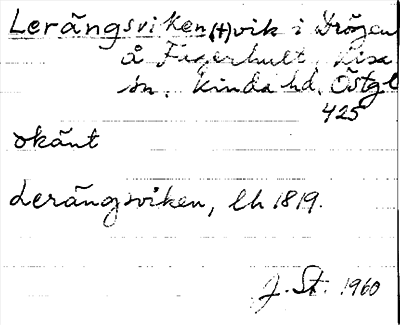 Lerängsviken (†) vik i Drögen
å Fagerhult, Kisa
sn. Kinda hd. Östgl
425
okänt
Lerängsviken, lh 1819.
J. St. 1960